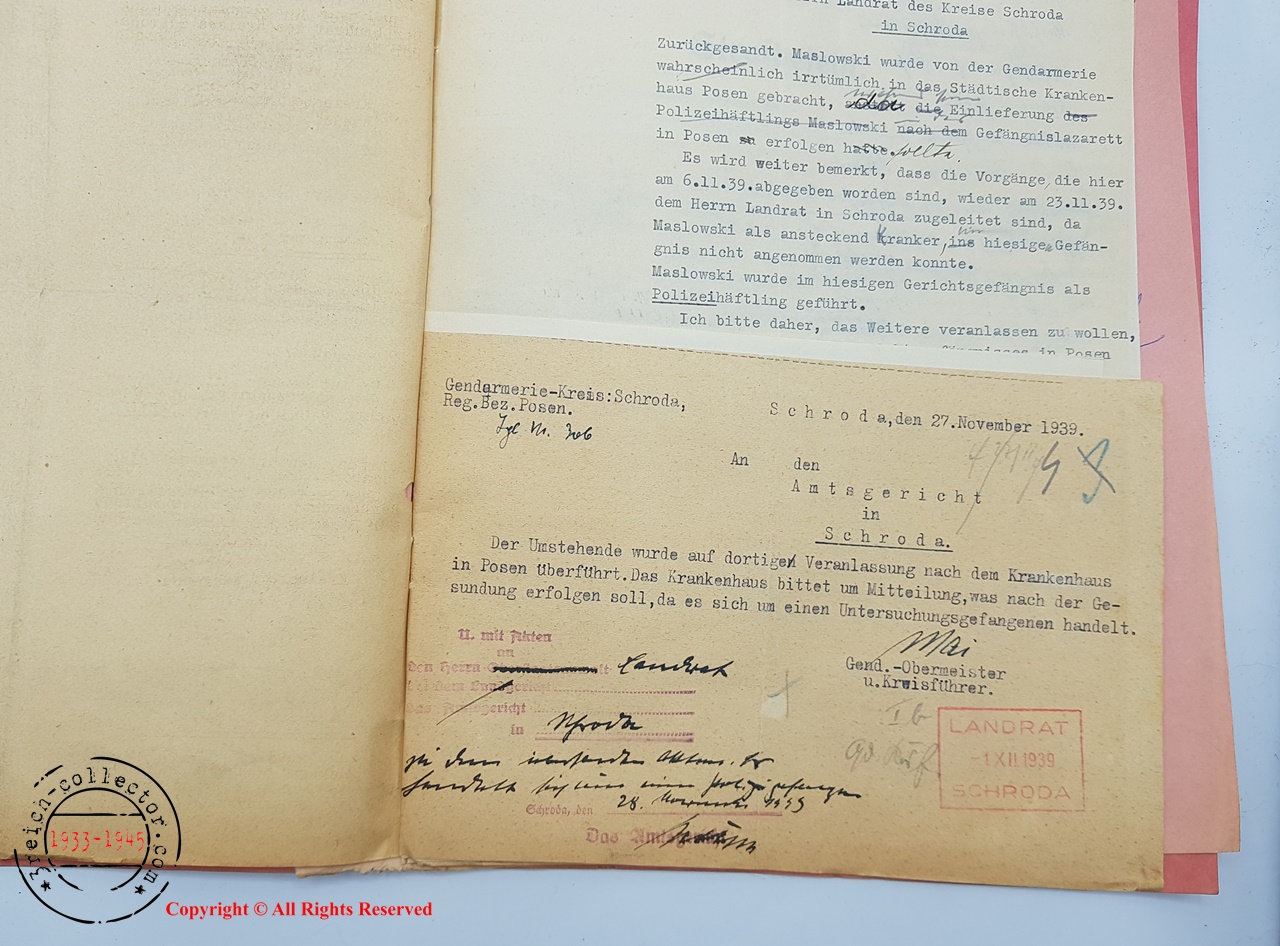 Landrat des Kreise Schroda
in Schroda
Zurückgesandt. Maslowski wurde von der Gendarmerie
wahrscheinlich irrtümlich in das Städtische Kranken-
haus Posen gebracht, da die Einlieferung des
Polizeihäftlings Maslowski nach dem Gefängnislazarett
in Posen erfolgen hatte. sollte.
Es wird weiter bemerkt, dass die Vorgänge, die hier
am 6.11.39.abgegeben worden sind, wieder am 23.11.39.
dem Herrn Landrat in Schroda zugeleitet sind, da
Maslowski als ansteckend Kranker, ins hiesige Gefän-
gnis nicht angenommen werden konnte.
Maslowski wurde im hiesigen Gerichtsgefängnis als
Polizeihäftling geführt.
Ich bitte daher, das Weitere veranlassen zu wollen,
in Posen
Gendarmerie-Kreis:Schroda,
Reg.Bez.Posen.
S c h r o d a,den 27.November 1939.
An den
A m t s g e r i c h t
in
S c h r o d a.
Der Umstehende wurde auf dortigen Veranlassung nach dem Krankenhaus
in Posen überführt.Das Krankenhaus bittet um Mitteilung,was nach der Ge-
sundung erfolgen soll,da es sich um einen Untersuchungsgefangenen handelt.
Mai
Gend.-Obermeister
u.Kreisführer.
U. mit Akten
an
den Herrn Landrat
bei dem Landgericht
das Amtsgericht
in Schroda
Schroda, den 28. November 1939
Das
I b
LANDRAT
-1 XII 1939
SCHRODA
3reich-collector.com
1933-1945
Copyright © All Rights Reserved